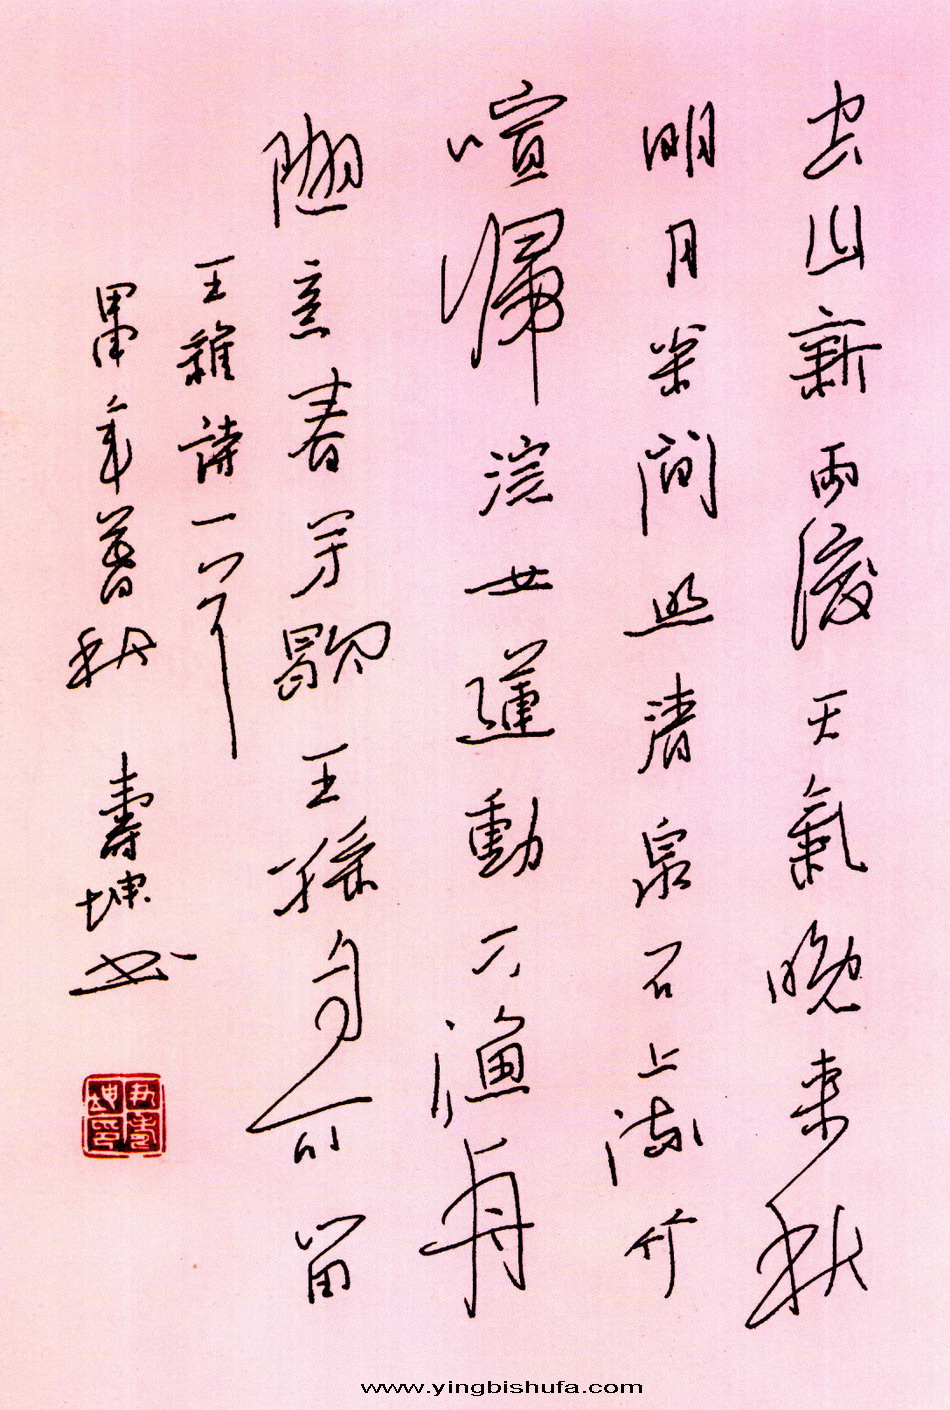 空山新雨後天氣晚来秋
明月松間照清泉石上流竹
喧歸浣女蓮動下漁舟
隨意春芳歇王孫自可留
王維詩一首
甲申年暮秋 壽坤书
www.yingbishufa.com